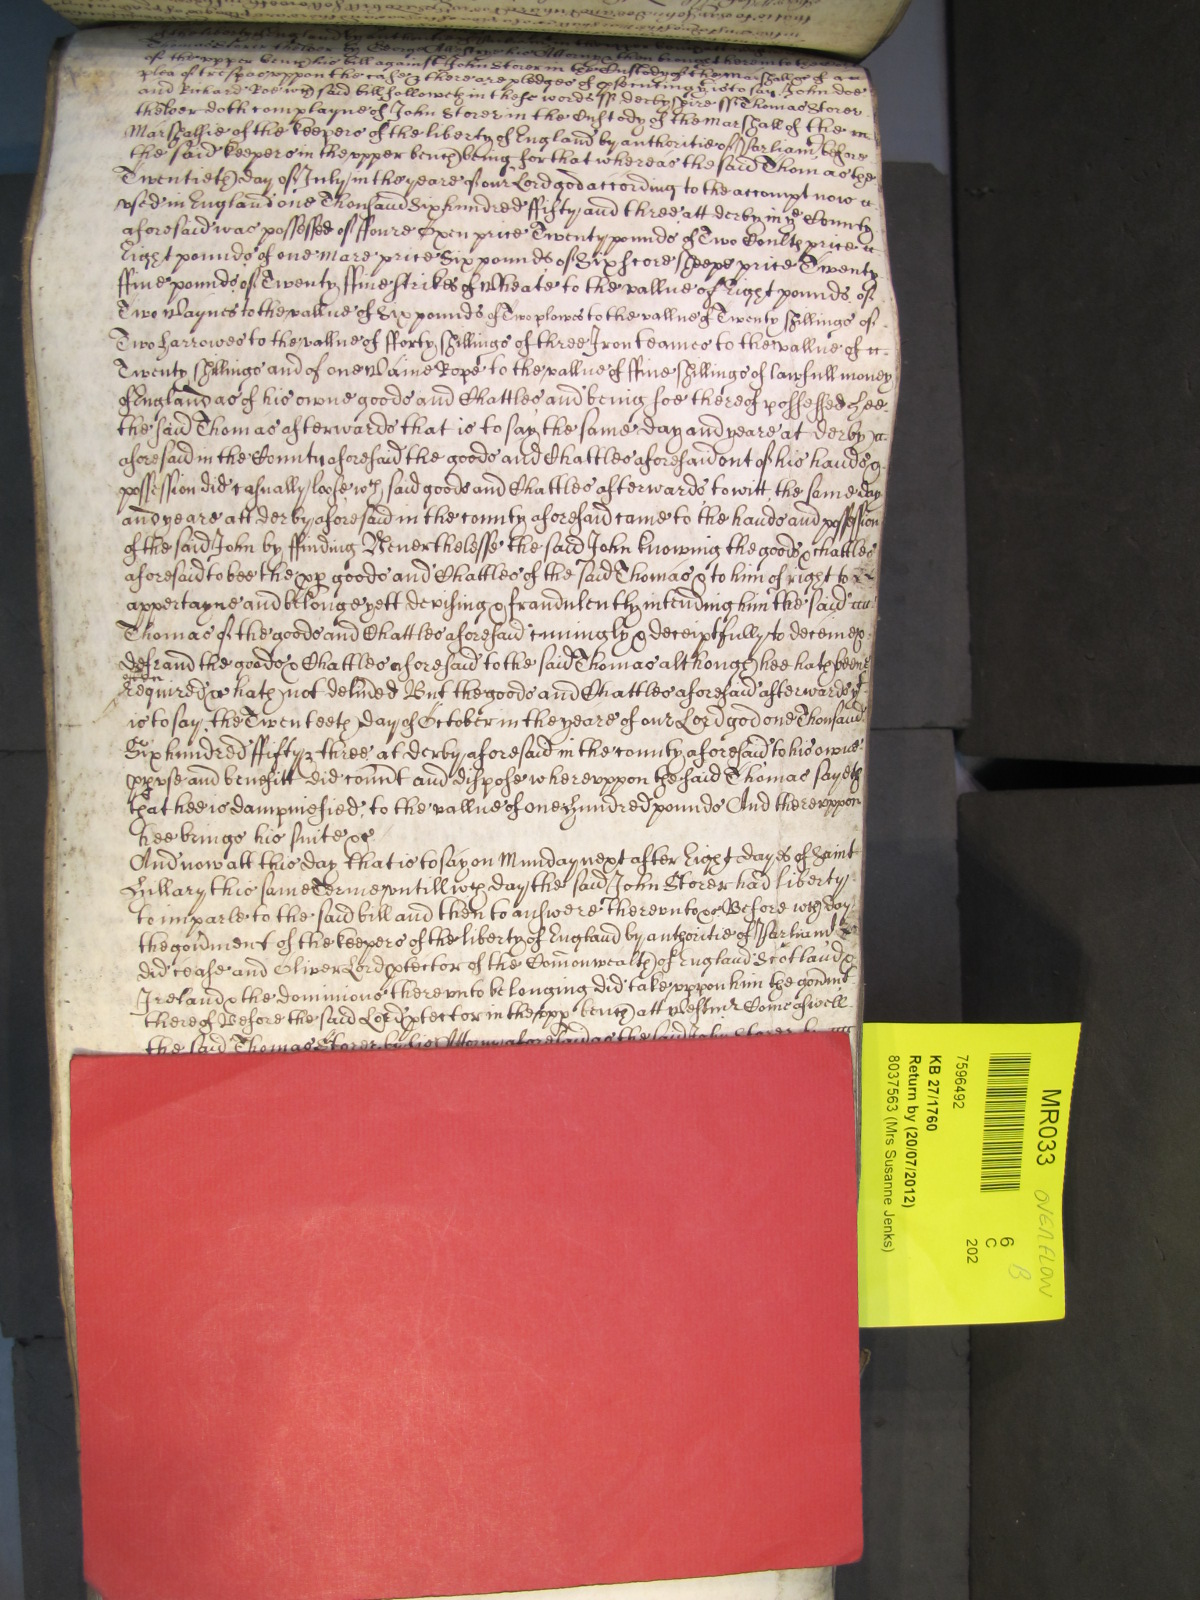 of the upper bench his bill against John Storer in the Custody of the Marshall &c of a
plea of trespas uppon the case & there are pledges of psecuting yt is to say John doe
and Richard Roe wch said bill followeth in these words ss derbyshire ss Thomas Storer
thelder doth complayne of John Storer in the Custody of the Marshall of the
Marshalsie of the keepers of the liberty of England by authoritie of Parliamt before
the said keepers in the upper bench being for that whereas the said Thomas the
Twentieth day of July in the yeare of our Lord god according to the accompt now
used in England one Thousand Six hundred ffifty and three att derby in ye County
aforesaid was possessed of ffoure Oxen price Twenty pounds of Two Coults price
Eight pounds of one mare price Six pounds of Six score sheepe price Twenty
ffive pounds of Twenty ffive strikes of Wheate to the vallue of Eight pounds of
Two Waynes to the vallue of Six pounds of Two plowes to the vallue of Twenty shillings of
Two harrowes to the vallue of fforty shillings of three Iron teames to the vallue of
Twenty shillings and of one Waine Rope to the vallue of ffive shillings of lawfull money
of England as of his owne goods and Chattles and being soe thereof possessed hee
the said Thomas afterwards that is to say the same day and yeare at derby
aforesaid in the County aforesaid the goods and Chattles aforesaid out of his hands &
possession did casually loose wch said goods and Chattles afterwards to witt the same day
and yeare att derby aforesaid in the county aforesaid came to the hands and possession
of the said John by ffinding Neverthelesse the said John knowing the goods & chattles
aforesaid to bee the pp goods and Chattles of the said Thomas & to him of right to
appertayne and belonge yett devising & fraudulently intending him the said
Thomas of the goods and Chattles aforesaid cuningly & deceiptfully to deceive &
defraud the goods & Chattles aforesaid to the said Thomas although hee hath beene
often
required &c hath not delived But the goods and Chattles aforesaid afterwards yt
is to say the Twenteeth day of October in the yeare of our Lord god one Thousand
Six hundred ffifty & three at derby aforesaid in the county aforesaid to his owne
pp use and benefitt did covert and dispose whereuppon the said Thomas sayeth
that hee is dampnefied to the vallue of one hundred pounds And thereuppon
hee brings his suite &c
And now att this day that is to say on Munday next after Eight dayes of Saint
Hillary this same Terme untill wch day the said John Storer had liberty
to imparle to the said bill and then to answere thereunto &c Before wch day
the govment of the keepers of the liberty of England by authoritie of Parliamt
did cease and Oliver Lord ptector of the Comonwealth of England Scotland &
Ireland & the dominions thereunto belonging did take uppon him the govmt
thereof Before the said Lord ptector in the upp bench att Westmr Come aswell
the said Thomas Storer by his Attorny aforesaid as the said John Storer by
MR033 OVERFLOW
6 B
C
202
7596492
KB 27/1760
Return by (20/07/2012)
8037563 (Mrs Susanne Jenks)